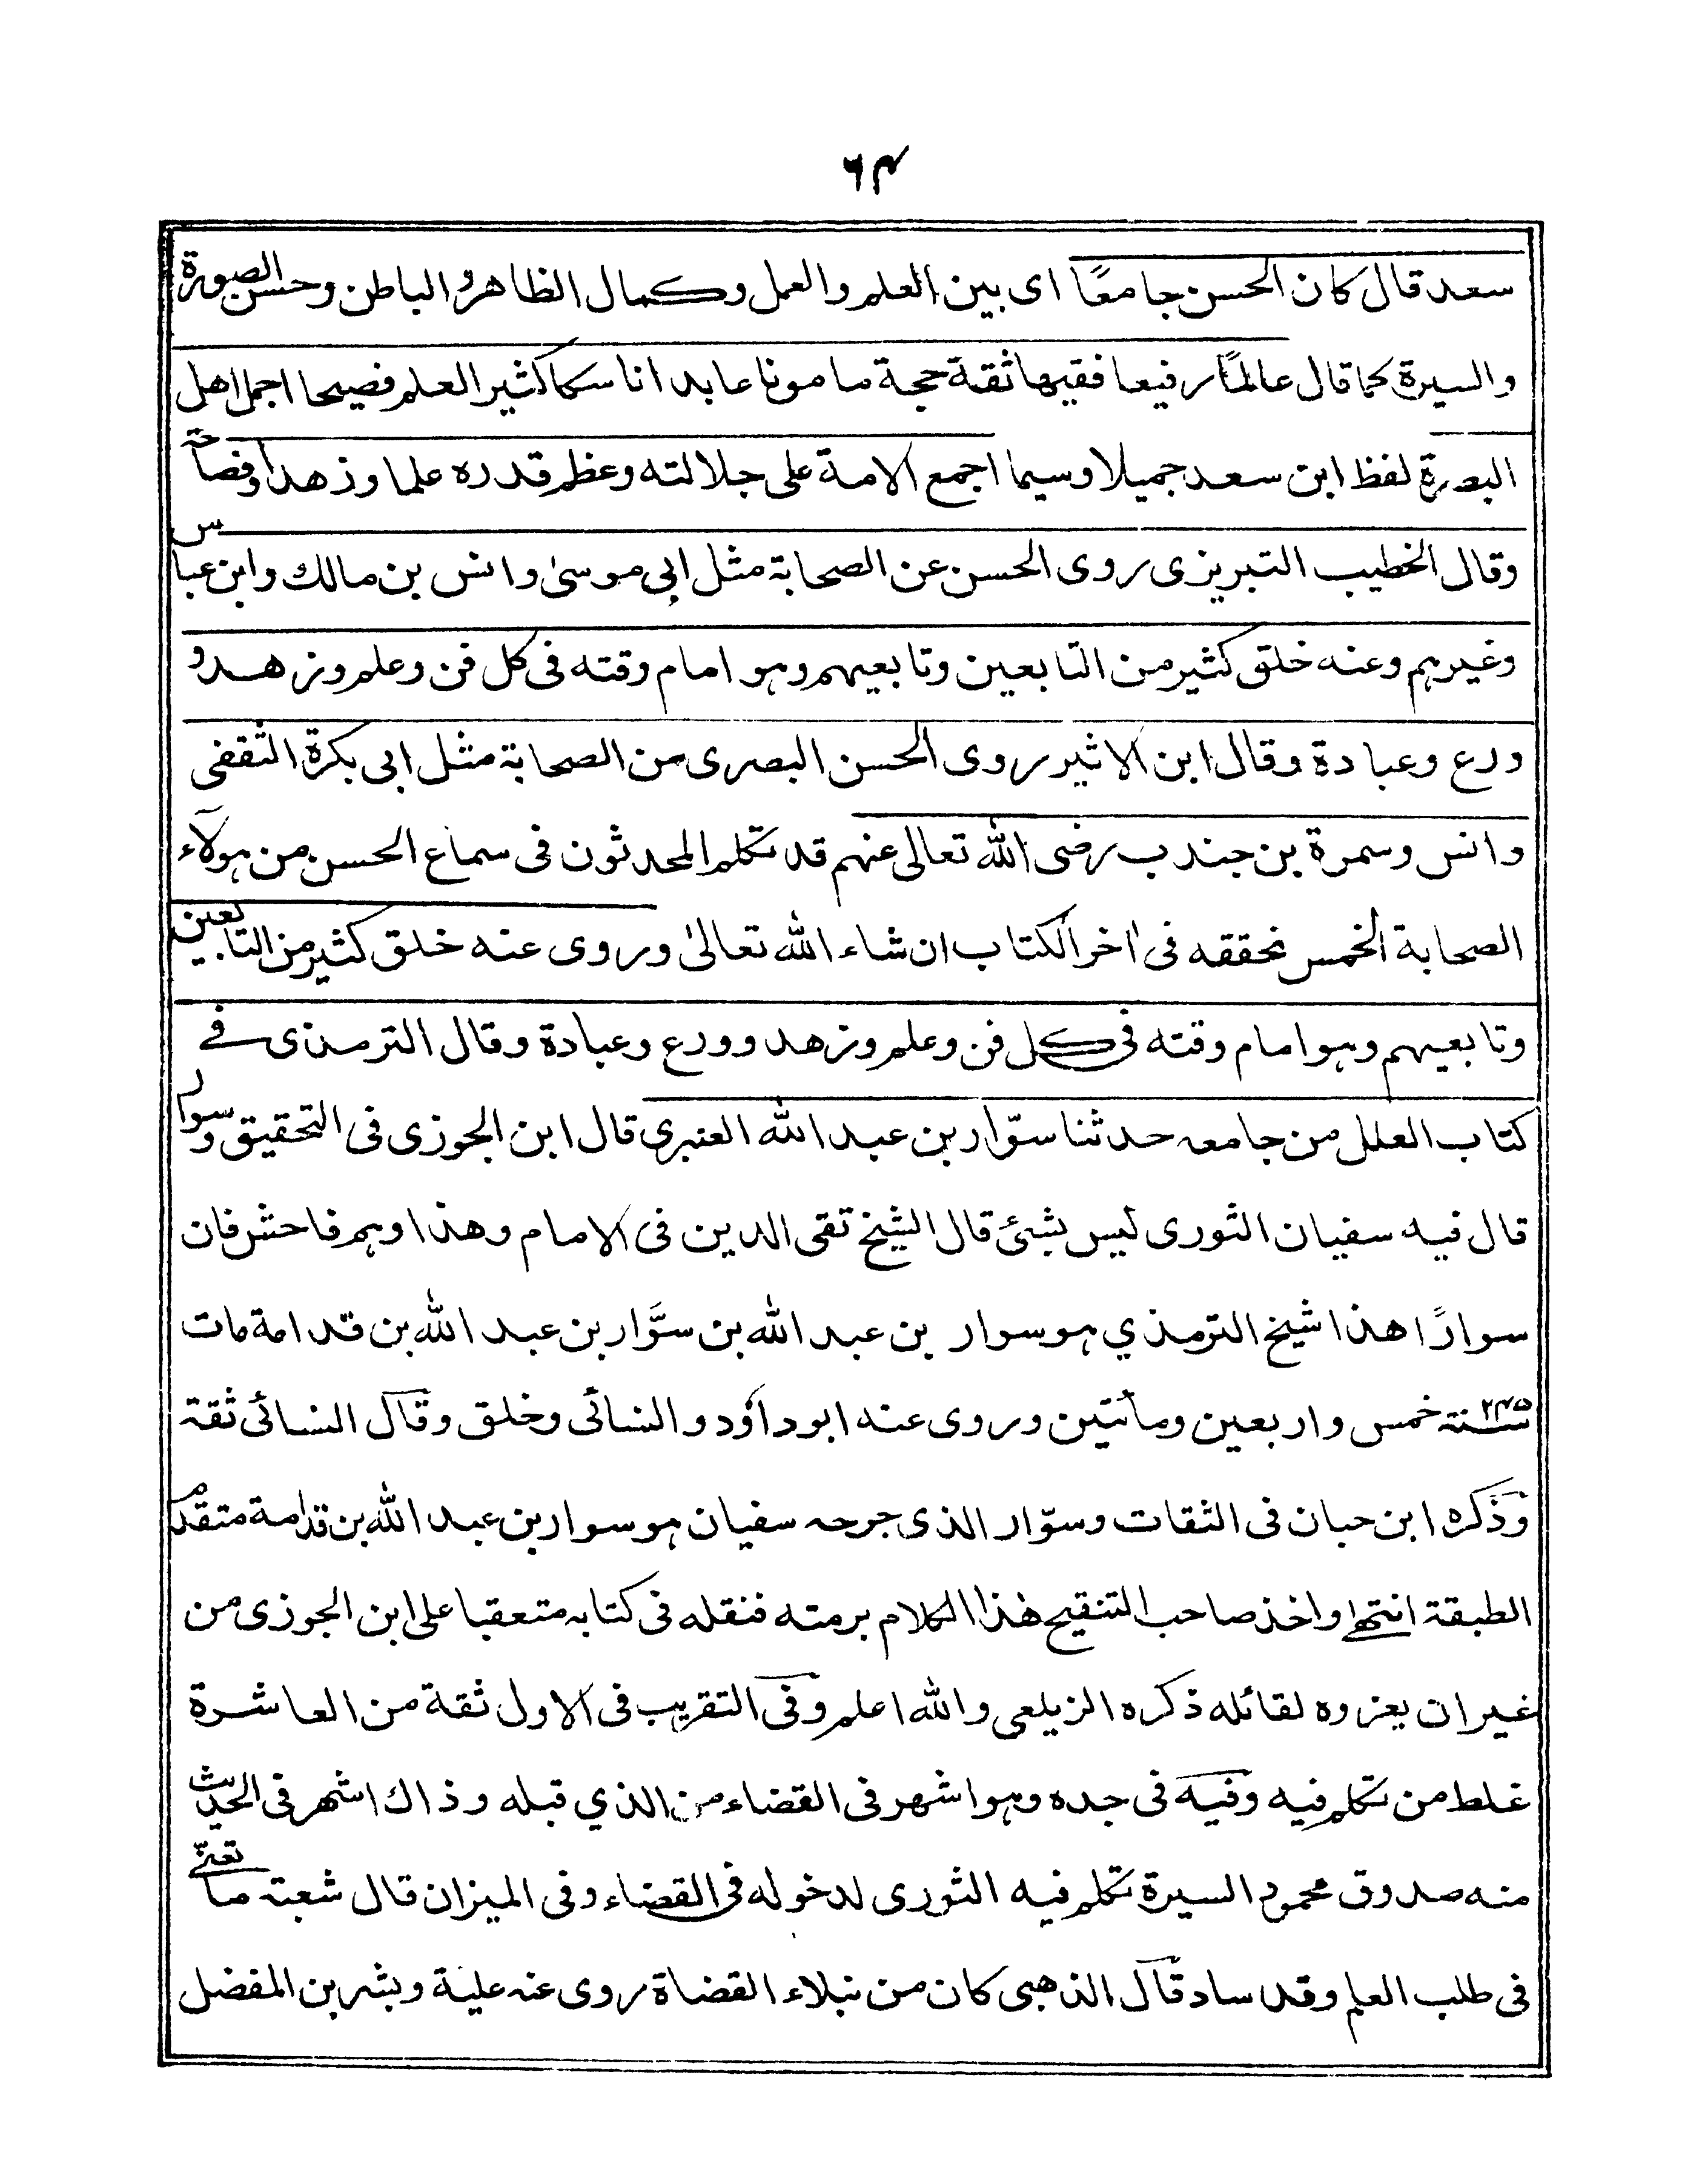 ۶۴
سعد قال كان الحسن جامعًا اى بين العلم والعمل وكمال الظاهر والباطن وحسن الصورة
والسيرة كما قال عالمًا رفيعا فقيها ثقة حجة مامونا عابدا ناسكا كثير العلم فصيحا اجمل اهل
البصرة لفظ ابن سعد جميلا وسيما اجمع الامة على جلالته وعظم قدره علما وزهدا وفصاحة
وقال الخطيب التبريزى روى الحسن عن الصحابة مثل ابي موسىٰ وانس بن مالك وابن عباس
وغيرہم وعنه خلق كثير من التابعين وتابعيهم وہو امام وقته فى كل فن وعلم وزهد و
ورع وعبادة وقال ابن الاثير روى الحسن البصرى من الصحابة مثل ابى بكرة الثقفى
وانس وسمرة بن جندب رضى الله تعالى عنہم قد تكلم المحدثون فى سماع الحسن من ہولآء
الصحابة الخمس نحققه فى اٰخر الكتاب ان شاء الله تعالىٰ وروى عنه خلق كثير من التابعين
وتابعيهم وہو امام وقته فى كل فن وعلم وزهد وورع وعبادة وقال الترمذى فے
كتاب العلل من جامعه حدثنا سوّار بن عبد الله العنبري قال ابن الجوزى فى التحقيق وسوار
قال فيه سفيان الثورى ليس بشئ قال الشيخ تقى الدين فى الامام وهذا وہم فاحش فان
سوارًا هذا شيخ الترمذي ہو سوار بن عبد الله بن سوَّار بن عبد الله بن قدامة مات
سنة ۲۴۵ خمس واربعين ومأتين وروى عنه ابو داؤد والنسائى وخلق وقال النسائى ثقة
وذكره ابن حبان فى الثقات وسوّار الذى جرحه سفيان ہو سوار بن عبد الله بن قدامة متقدم
الطبقة انتهى واخذ صاحب التنقيح هٰذا الكلام برمته فنقله فى كتابه متعقبا على ابن الجوزى من
غير ان يعزوه لقائله ذكره الزيلعى والله اعلم وفى التقريب فى الاول ثقة من العاشرة
غلط من تكلم فيه وفيه فى جده وہو اشهر فى القضاء من الذي قبله وذاك اشهر فى الحديث
منه صدوق محمود السيرة تكلم فيه الثورى لدخوله فى القضاء وفى الميزان قال شعبة ما تعنّى
فى طلب العلم وقد ساد قال الذهبى كان من نبلاء القضاة روى عنه علية وبشر بن المفضل